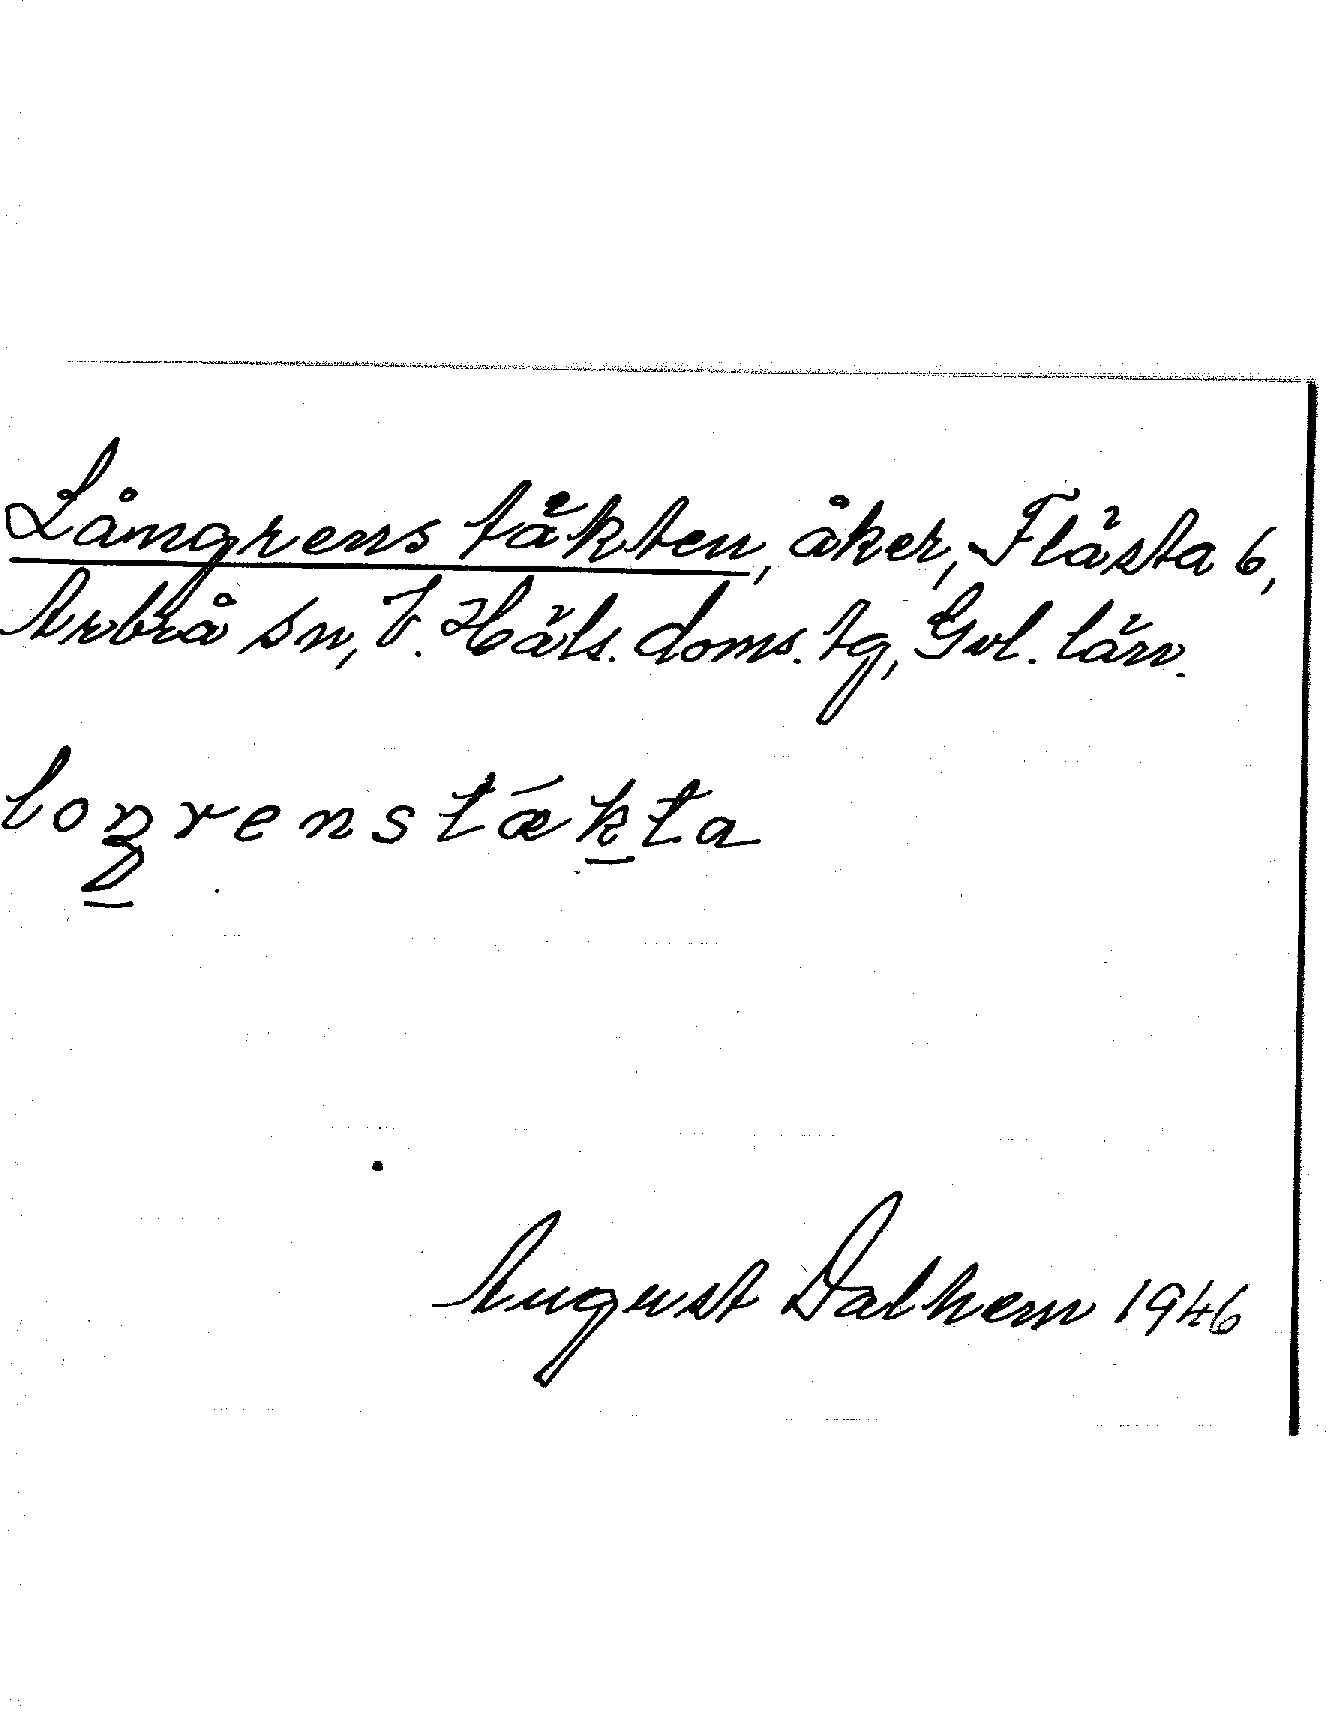 Långrens täkten, åker, Flästa 6,
Arbrå sn, V. Häls. doms. tg, Gvl. län.
loŋrenstǽkta
August Dalhem 1946